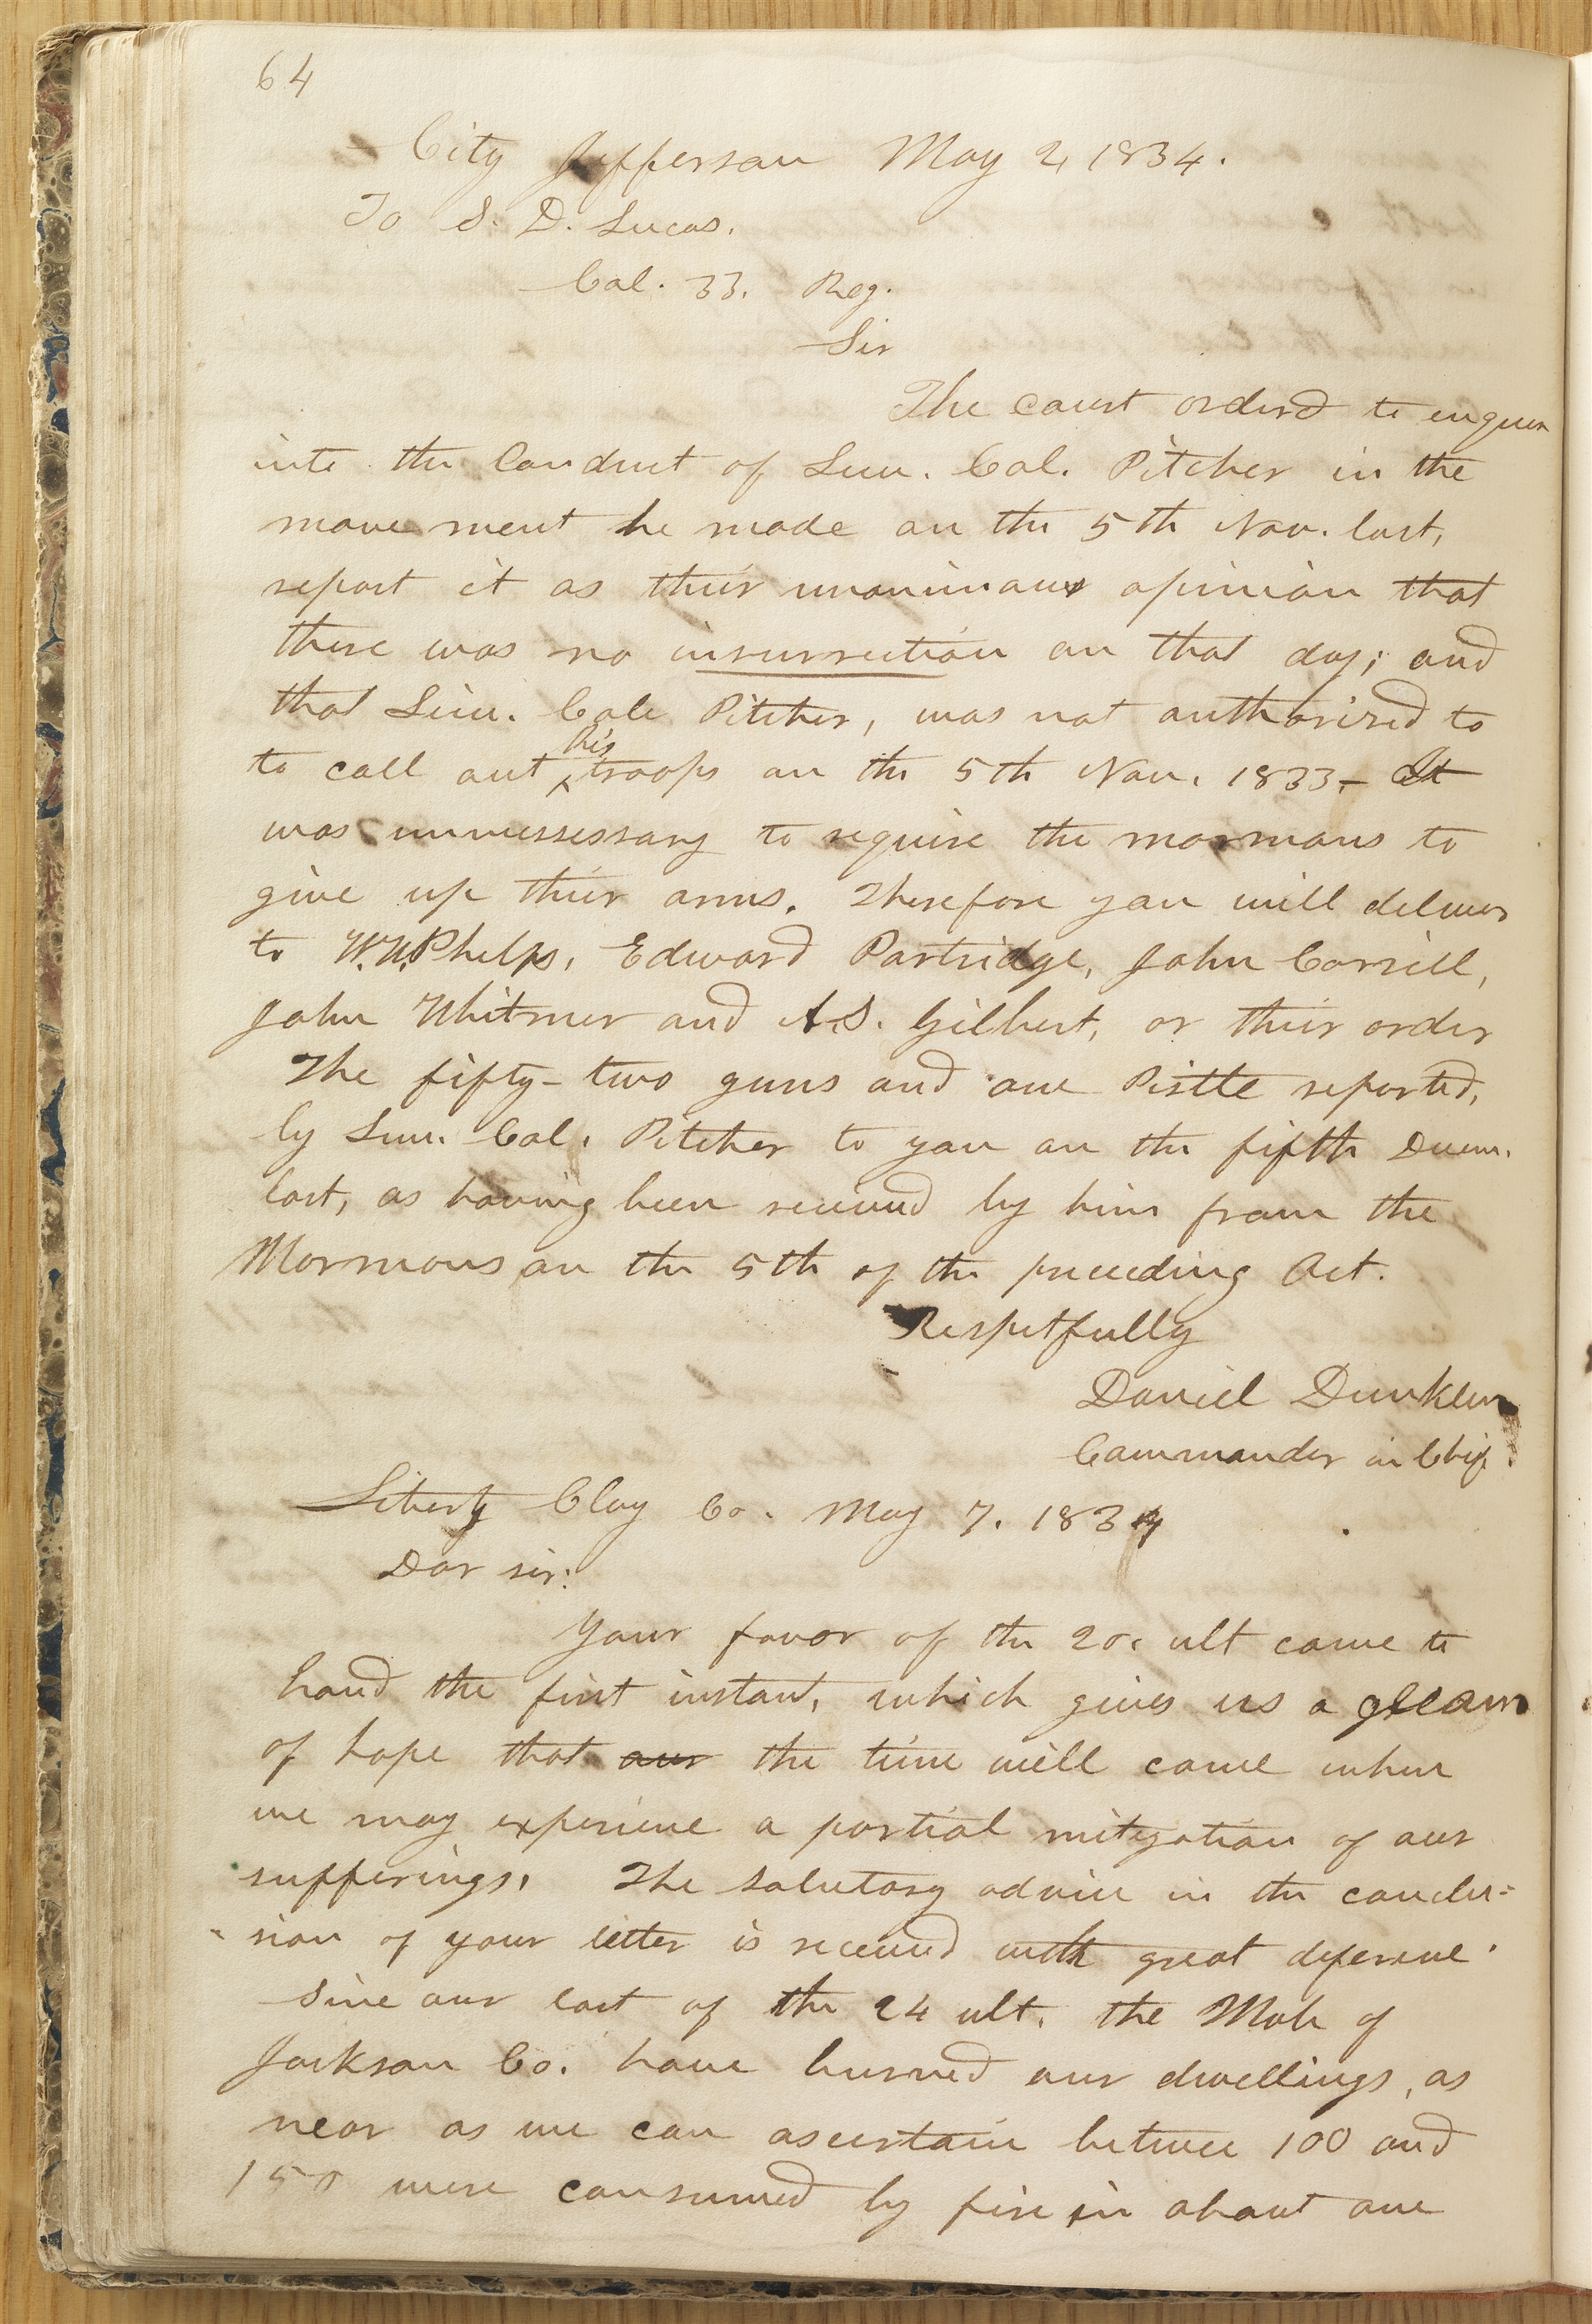 64
City Jefferson May 2, 1834.
To S. D. Lucas.
Col. 33. Reg.
Sir
The court orderd to enquire
into the Conduct of Lieu. Col. Pitcher in the
move ment he made on the 5th Nov. last,
report it as their unanimous opinion that
there was no insurrection on that day; and
that Lieu. Cole Pitcher, was not authorized to
to call out his troops on the 5th Nov. 1833,- It
was unnessessary to require the mormons to
give up their arms. Therefore you will deliver
to W. W. Phelps, Edward Partridge, John Corrill,
John Whitmer and A. S. Gilbert, or their order
The fifty-two guns and one Pistle reported,
by Lieu. Col. Pitcher to you on the fifth Decem.
last, as having been received by him from the
Mormons on the 5th of the preceeding Oct.
Respetfully
Daniel Dunklin
Commander in Chief.
Liberty Clay Co. May 7. 1834
Dear sir:
Your favor of the 20. ult came to
hand the first instant, which gives us a gleam
of hope that our the time will come when
we may experience a partial mitigation of our
sufferings. The salutary advice in the conclu=
sion of your letter is received with great deference.
Since our last of the 24 ult. the Mob of
Jackson Co. have burned our dwellings, as
near as we can ascertain betwee 100 and
150 were consumed by fire in about one